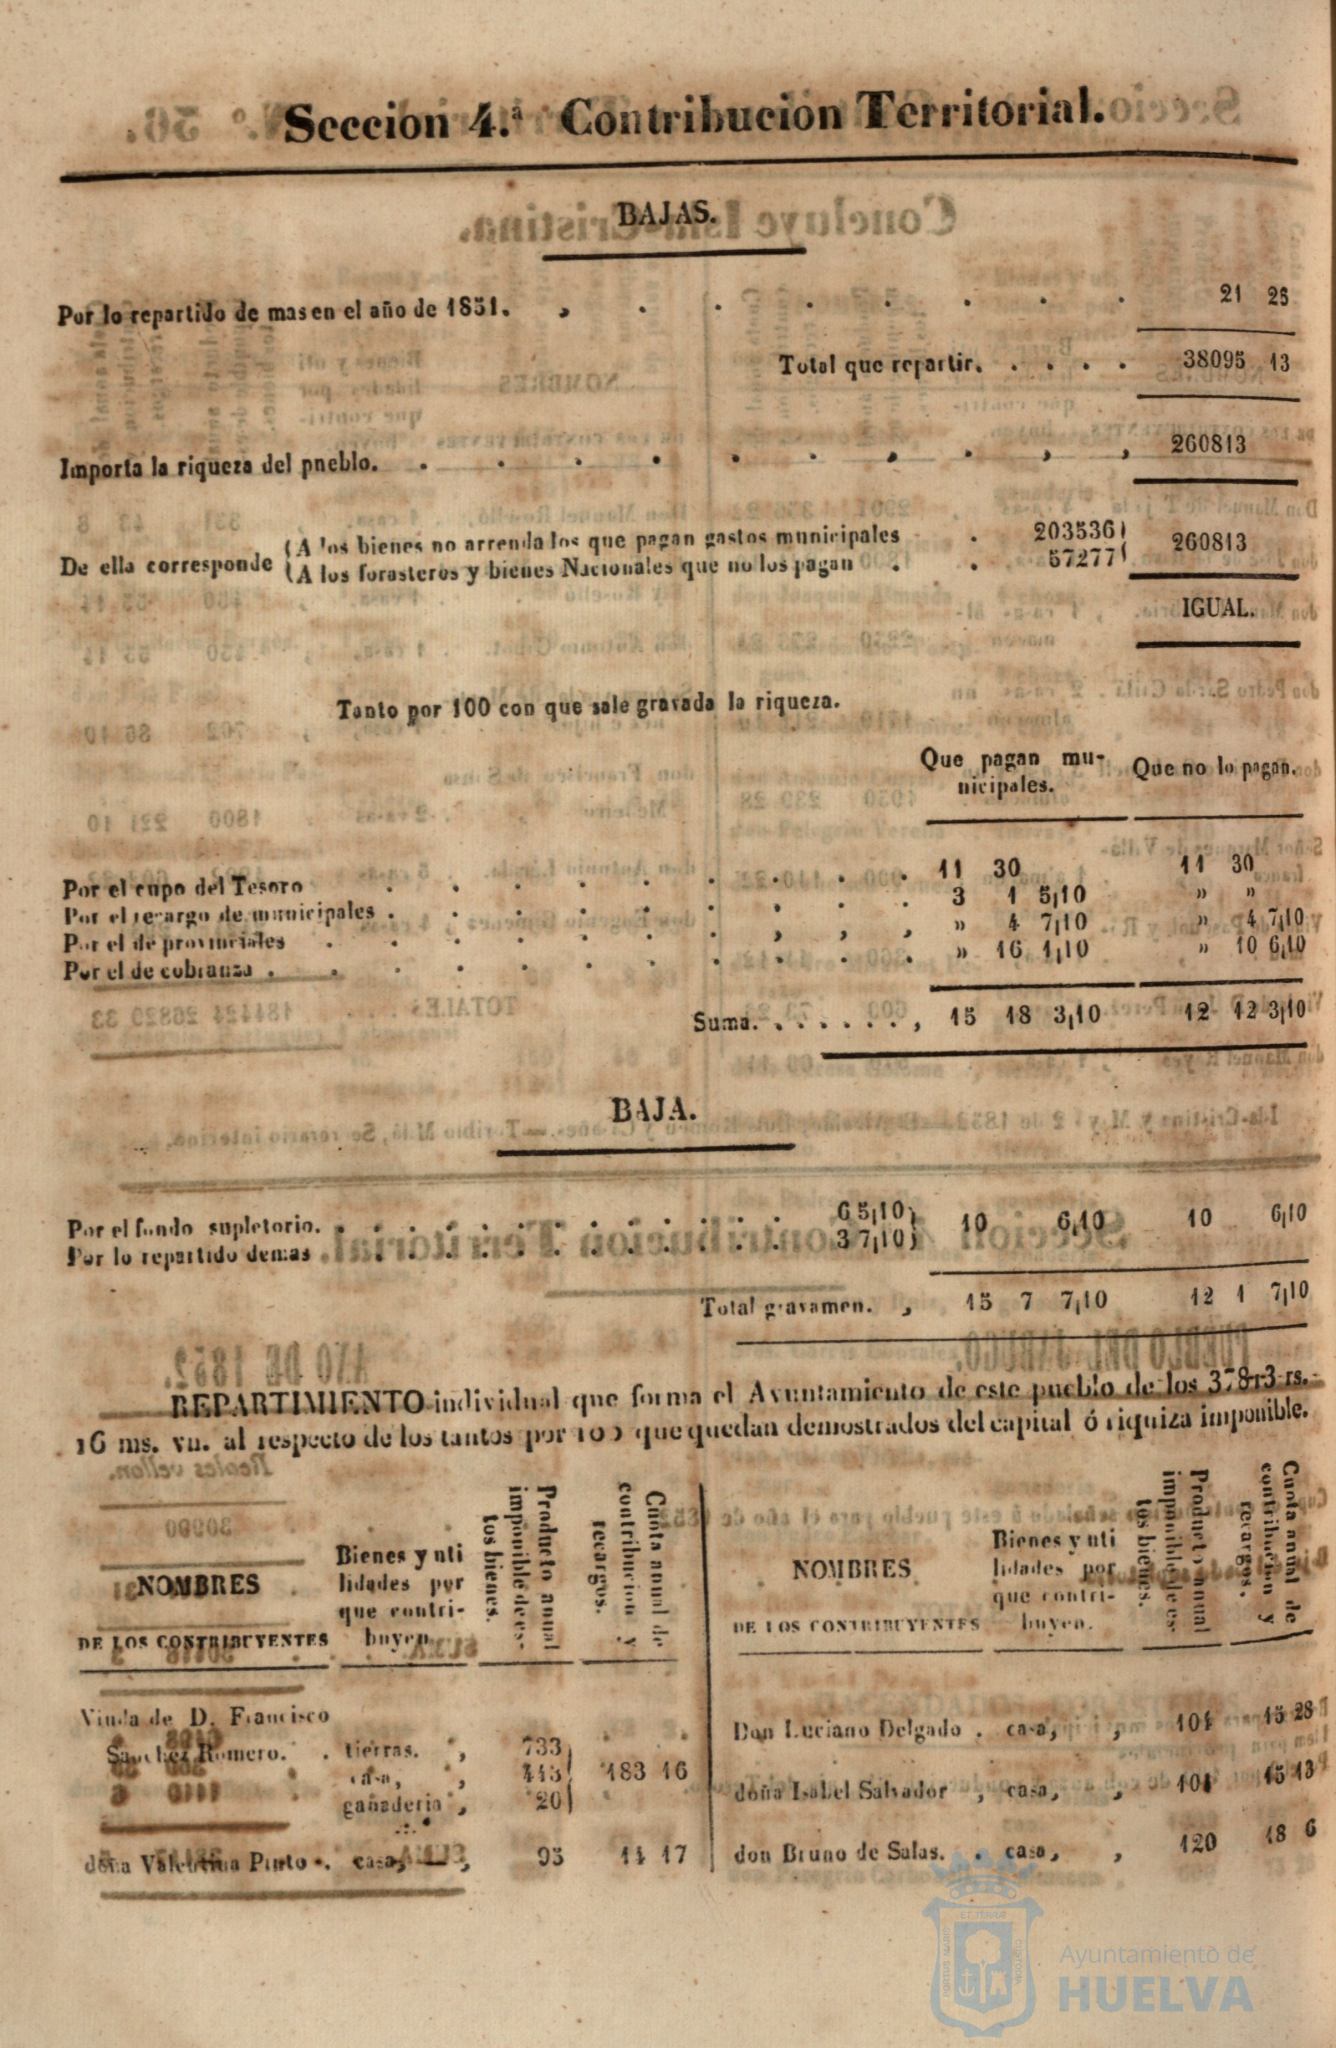 Seccion 4.ª Contribucion Territorial.
BAJAS.
Por lo repartido de mas en el año de 1851. , . . . . . . . 21 25
Total que repartir. . . . . 38095 13
Importa la riqueza del pueblo. . . . . . . . . , , 260813
De ella corresponde
(A los bienes no arrendados que pagan gastos municipales . 203536)
(A los forasteros y bienes Nacionales que no los pagan . . 57277(
260813
IGUAL.
Tanto por 100 con que sale gravada la riqueza.
Que pagan mu-
nicipales.
Que no lo pagan.
Por el cupo del Tesoro . . . . . . . . 11 30 11 30
Por el recargo de municipales . . . . . . . . 3 1 5,10 » »
Por el de provinciales . . . . . , , , » 4 7,10 » 4 7,10
Por el de cobranza . . . . . . . . . » 16 1,10 » 10 6,10
Suma. . . . . . . , 15 18 3,10 12 12 3,10
BAJA.
Por el fondo supletorio. . . . . . . . . . . . 6 5,10)
Por lo repartido demas . . . . . . . . . . . 3 7,10)
10 6,10 10 6,10
Total gravamen. , 15 7 7,10 12 1 7,10
REPARTIMIENTO individual que forma el Ayuntamiento de este pueblo de los rs.
16 ms. vn. al respecto de los tantos por 100 que quedan demostrados del capital ó riquiza imponible.
NOMBRES
DE LOS CONTRIBUYENTES
Bienes y uti
lidades por
que contri-
buyen.
Producto anual
imponible de es-
tos bienes.
Cuota anual de
contribucion y
recargos.
Viuda de D. Francisco
Sanchez Romero. . tierras. , 733)
casa, , 443) 183 16
ganaderia , 20)
doña Valentina Pinto . casa, , 93 14 17
NOMBRES
DE LOS CONTRIBUYENTES
Bienes y uti
lidades por
que contri-
buyen.
Producto anual
imponible de es-
tos bienes.
Cuota anual de
contribucion y
recargos.
Don Luciano Delgado . casa, , 104 15 28
doña Isabel Salvador , casa, , 101 15 13
don Bruno de Salas. . casa, , 120 18 6
Ayuntamiento de
HUELVA